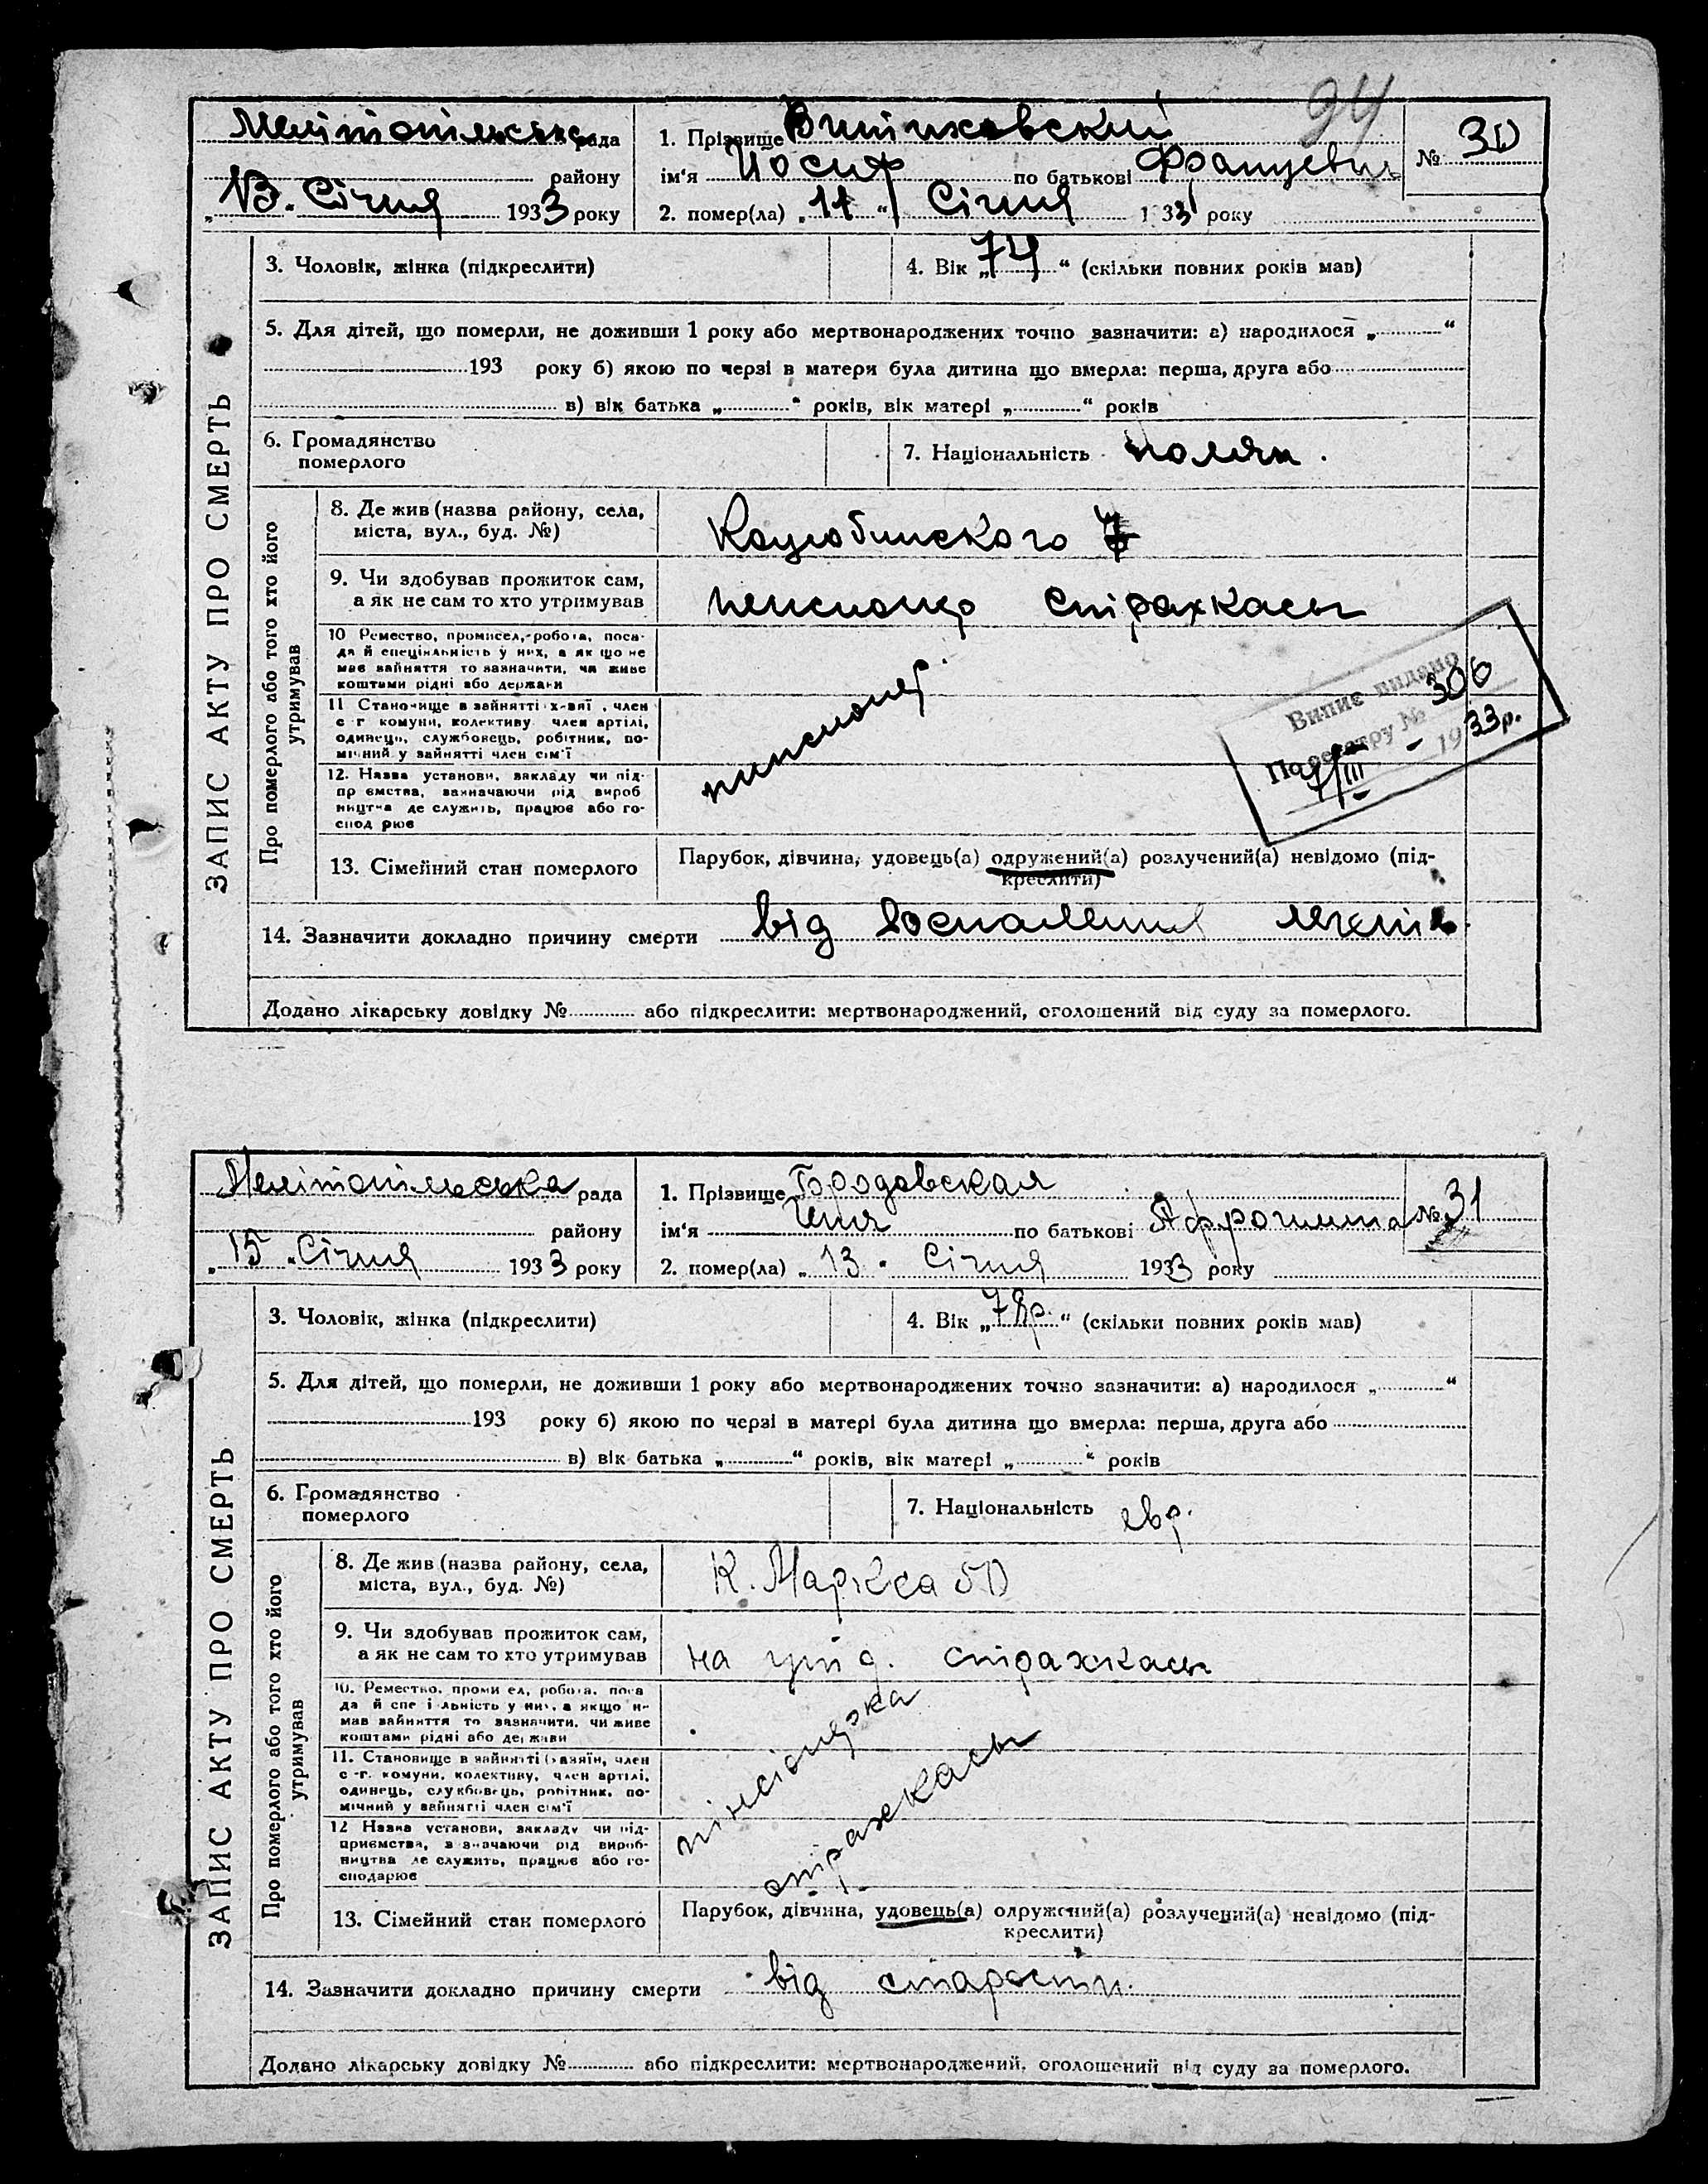 94
Мелітопільська рада
району
"13" Січня 1933 року
1. Прізвище
ім'я Иосиф по батькові Францевич
2. помер(ла) "11" Січня 1933 року
№ 30
ЗАПИС АКТУ ПРО СМЕРТЬ
3. Чоловік, жінка (підкреслити)
4. Вік „74“ (скільки повних років мав)
5. Для дітей, що померли, не доживши 1 року або мертвонароджених точно зазначити: а) народилося „ “
193 року б) якою по черзі в матери була дитина що вмерла: перша, друга або
в) вік батька „ “ років, вік матері „ “ років
6. Громадянство
померлого
7. Національність поляк.
Про померлого або того хто його
утримував
8. Де жив (назва району, села,
міста, вул., буд. №)
Коцюбинского 7
9. Чи здобував прожиток сам,
а як не сам то хто утримував
пенсионер страхкасы
10 Ремество, промисел, робота, поса-
да й спеціяльність у них, а як що не
мав зайняття то зазначити, чи живе
коштами рідні або держави
11 Становище в зайнятті х-зяї , член
с г комуни, колективу член артілі,
одинець, службовець, робітник, по-
мічний у зайнятті член сім'ї
12. Назва установи, закладу чи під-
пр ємства, зазначаючи рід вироб
ництва де служить, працює або го-
спод рює
пенсионер.
Випис видано
По реєстру № 306
7/III - 1933р.
13. Сімейний стан померлого
Парубок, дівчина, удовець(а) одружений(а) розлучений(а) невідомо (під-
креслити)
14. Зазначити докладно причину смерти від воспаления легких
Додано лікарську довідку № або підкреслити: мертвонароджений, оголошений від суду за померлого.
Мелітопільська рада
району
"15" Січня 1933 року
1. Прізвище Бродавская
ім'я по батькові
2. помер(ла) „13" Січня 1933 року
№ 31
ЗАПИС АКТУ ПРО СМЕРТЬ
3. Чоловік, жінка (підкреслити)
4. Вік „78р.“ (скільки повних років мав)
5. Для дітей, що померли, не доживши 1 року або мертвонароджених точно зазначити: а) народилося „ “
193 року б) якою по черзі в матері була дитина що вмерла: перша, друга або
в) вік батька „ “ років, вік матері „ “ років
6. Громадянство
померлого
7. Національність евр.
Про померлого або того хто його
утримував
8. Де жив (назва району, села,
міста, вул., буд. №)
К. Маркса 50
9. Чи здобував прожиток сам,
а як не сам то хто утримував
на утр. страхкасы
10. Ремество, проми ел, робота, поса
да й спе і льність у них, а якщо н-
мав зайняття то зазначити, чи живе
коштами рідні або держави
11. Становище в зайнятті (хазяїн, член
с-г. комуни, колективу, член артілі,
одинець, службовець, робітник, по-
мічний у зайнятті член сім'ї
12 Назва установи, закладу чи під-
приємства, зазначаючи рід вироб-
ництва де служить, працює або го-
сподарює
пінсіонерка
страхкасы
13. Сімейний стан померлого
Парубок, дівчина, удовець(а) одружений(а) розлучений(а) невідомо (під-
креслити)
14. Зазначити докладно причину смерти від старости.
Додано лікарську довідку № або підкреслити: мертвонароджений, оголошений від суду за померлого.